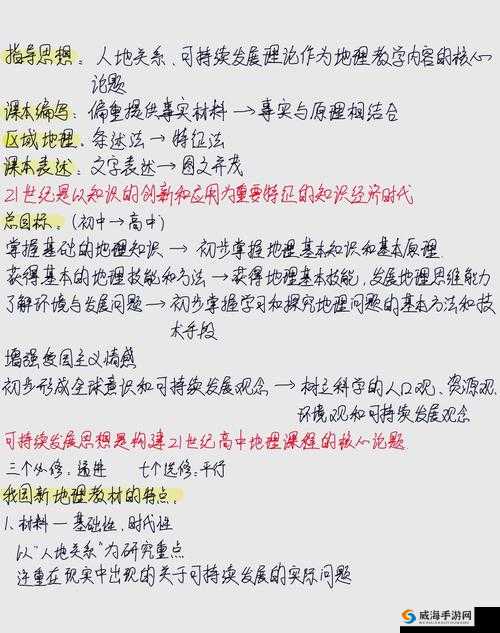 指导思想：人地关系、可持续发展理论作为地理教学内容的核心
论题
课本编写：偏重提供事实材料→事实与原理相结合
区域地理：条述法→特征法
课本表述：文字表述→图文并茂
21世纪是以知识的创新和应用为重要特征的知识经济时代
总目标：(初中→高中)
掌握基础的地理知识→初步掌握地理基本知识和基本原理.
获得基本的地理技能和方法→获得地理基本技能,发展地理思维能力
了解环境与发展问题→初步掌握学习和探究地理问题的基本方法和技
术手段
增强爱国主义情感
初步形成全球意识和可持续发展观念→树立科学的人口观、资源观.
环境观和可持续发展观念
可持续发展思想是构建21世纪高中地理课程的核心论题.
三个必修:递进 七个选修:平行
我国新地理教材的特点.
1、材料—基础性,时代性
以“人地关系”为研究重点
注重在现实中出现的关于可持续发展的实际问题
威海手游网